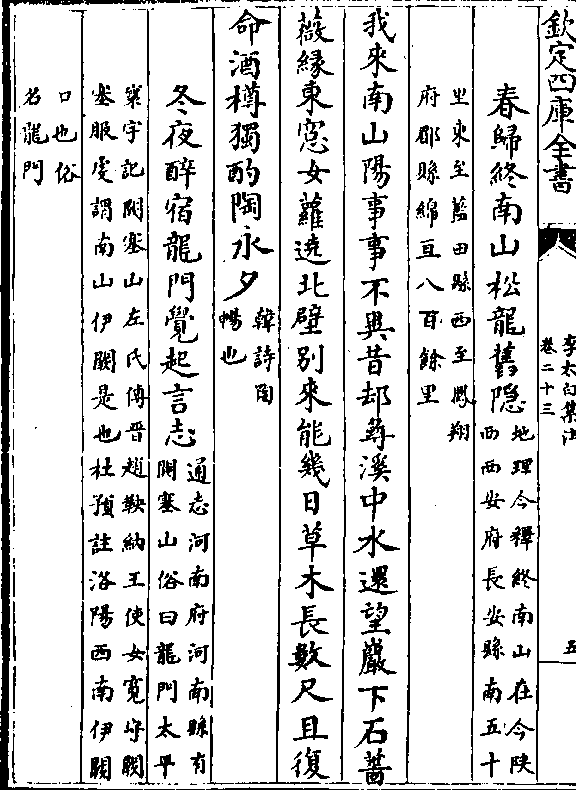 欽定四庫全書
李太白集注
卷二十三
五
春歸終南山松龍舊隱
地理今釋終南山在今陝
西西安府長安縣南五十
里東至藍田縣西至鳳翔
府郿縣綿亘八百餘里
我來南山陽事事不異昔却尋溪中水還望巖下石薔
薇緣東窓女蘿遶北壁别來能幾日草木長數尺且復
命酒樽獨酌陶永夕
韓詩陶
暢也
冬夜醉宿龍門覺起言志
通志河南府河南縣有
闕塞山俗曰龍門太平
寰宇記闕塞山左氏傳晉趙鞅納王使女寛守闕
塞服虔謂南山伊闕是也杜預註洛陽西南伊闕
口也俗
名龍門